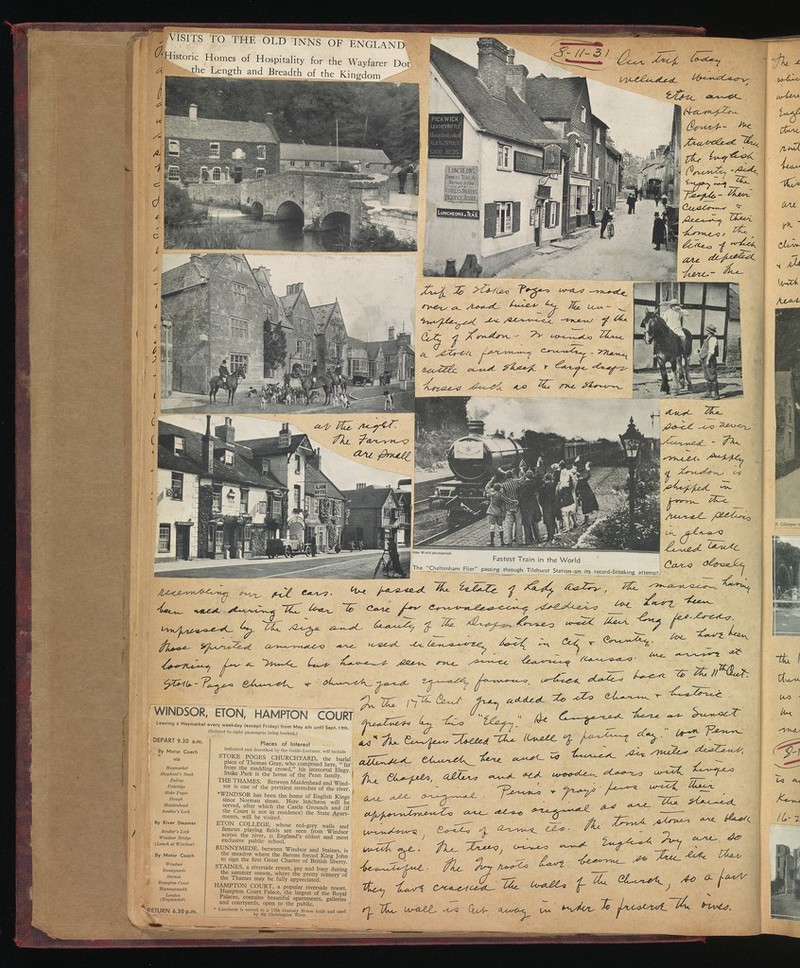 VISITS TO THE OLD INNS OF ENGLAND
Historic Homes of Hospitality for the Wayfarer Dot
the Length and Breadth of the Kingdom
8-11-31
Our trip today
included Windsor,
Eton and
Hampton
Court - We
traveled thru
the English
Country-side,
enjoying the
People - their
Customs &
seeing their
homes, the
likes of which
are depicted
here - The
PICKWICK
LUNCHEONS & TEAS
trip to Stokes Poges was made
over a road built by the un-
employed ex service men of the
City of London - It winds thru
a stock farming country. Many
cattle and sheep & large draft
horses such as the one shown
at the right.
The Farms
are small
and the
soil is never
turned - The
milk supply
of London is
shipped in
from the
rural sections
in glass
lined tank
cars closely
Fastest Train in the World
The "Cheltenham Flier" passing through Tilehurst Station on its record-breaking attempt
resembling our oil cars. We passed the Estate of Lady Astor, the mansion having
been used during the War to care for convalescing soldiers. We have been
impressed by the size and beauty of the horses with their long fet-locks.
These spirited animals are used extensively both in City & Country. We have been
looking for a mule but havent seen one since leaving Kansas. We arrive at
Stoke-Poges Church & church yard equally famous, which dates back to the 11th Cent.
In the 17th Cent. Gray added to its charm & historic
greatness by his "Elegy." He lingered here at Sunset
as "The Curfew tolled the knell of parting day." Wm Penn
attended Church here and is buried six miles distant.
The Chapels, Alters and old wooden doors with hinges
are all original. Penns & Grays pews with their
appointments are also original as are the stained
windows, Coats of arms etc. The tomb stones are black
with age. The trees, vines and English Ivy are so
beautiful. The Ivy roots have become so tree like that
they have cracked the walls of the Church, so a part
of the wall is cut away in order to preserve the vines.
WINDSOR, ETON, HAMPTON COURT
Leaving a Haymarket every weekday (except Friday) from May 6th until Sept. 19th.
(Subject to eight passengers being booked.)
DEPART 9.30 a.m.
By Motor Coach
via
Haymarket
Shepherd's Bush
Ealing
Uxbridge
Stoke Poges
Slough
Maidenhead
Boulter's Lock
By River Steamer
Boulter's Lock
Windsor Bridge
(Lunch at Windsor)
By Motor Coach
Windsor
Runnymede
Staines
Hampton Court
Hammersmith
London
(Haymarket)
RETURN 6.30 p.m.
Places of Interest
indicated and described by the Guide-Lecturer, will include
STOKE POGES CHURCHYARD, the burial
place of Thomas Gray, who composed here, "far
from the madding crowd," his immortal Elegy.
Stoke Park is the home of the Penn family.
THE THAMES. Between Maidenhead and Wind-
sor is one of the prettiest stretches of the river.
*WINDSOR has been the home of English Kings
since Norman times. Here luncheon will be
served, after which the Castle Grounds and (if
the Court is not in residence) the State Apart-
ments, will be visited.
ETON COLLEGE, whose red-grey walls and
famous playing fields are seen from Windsor
across the river, is England's oldest and most
exclusive public school.
RUNNYMEDE, between Windsor and Staines, is
the meadow where the Barons forced King John
to sign the first Great Charter of British liberty.
STAINES, a riverside resort, gay and busy during
the summer season, where the pretty scenery of
the Thames may be fully appreciated.
HAMPTON COURT, a popular riverside resort.
Hampton Court Palace, the largest of the Royal
Palaces, contains beautiful apartments, galleries
and courtyards, open to the public.
* Luncheon is served in a 17th century House built and used
by Sir Christopher Wren.